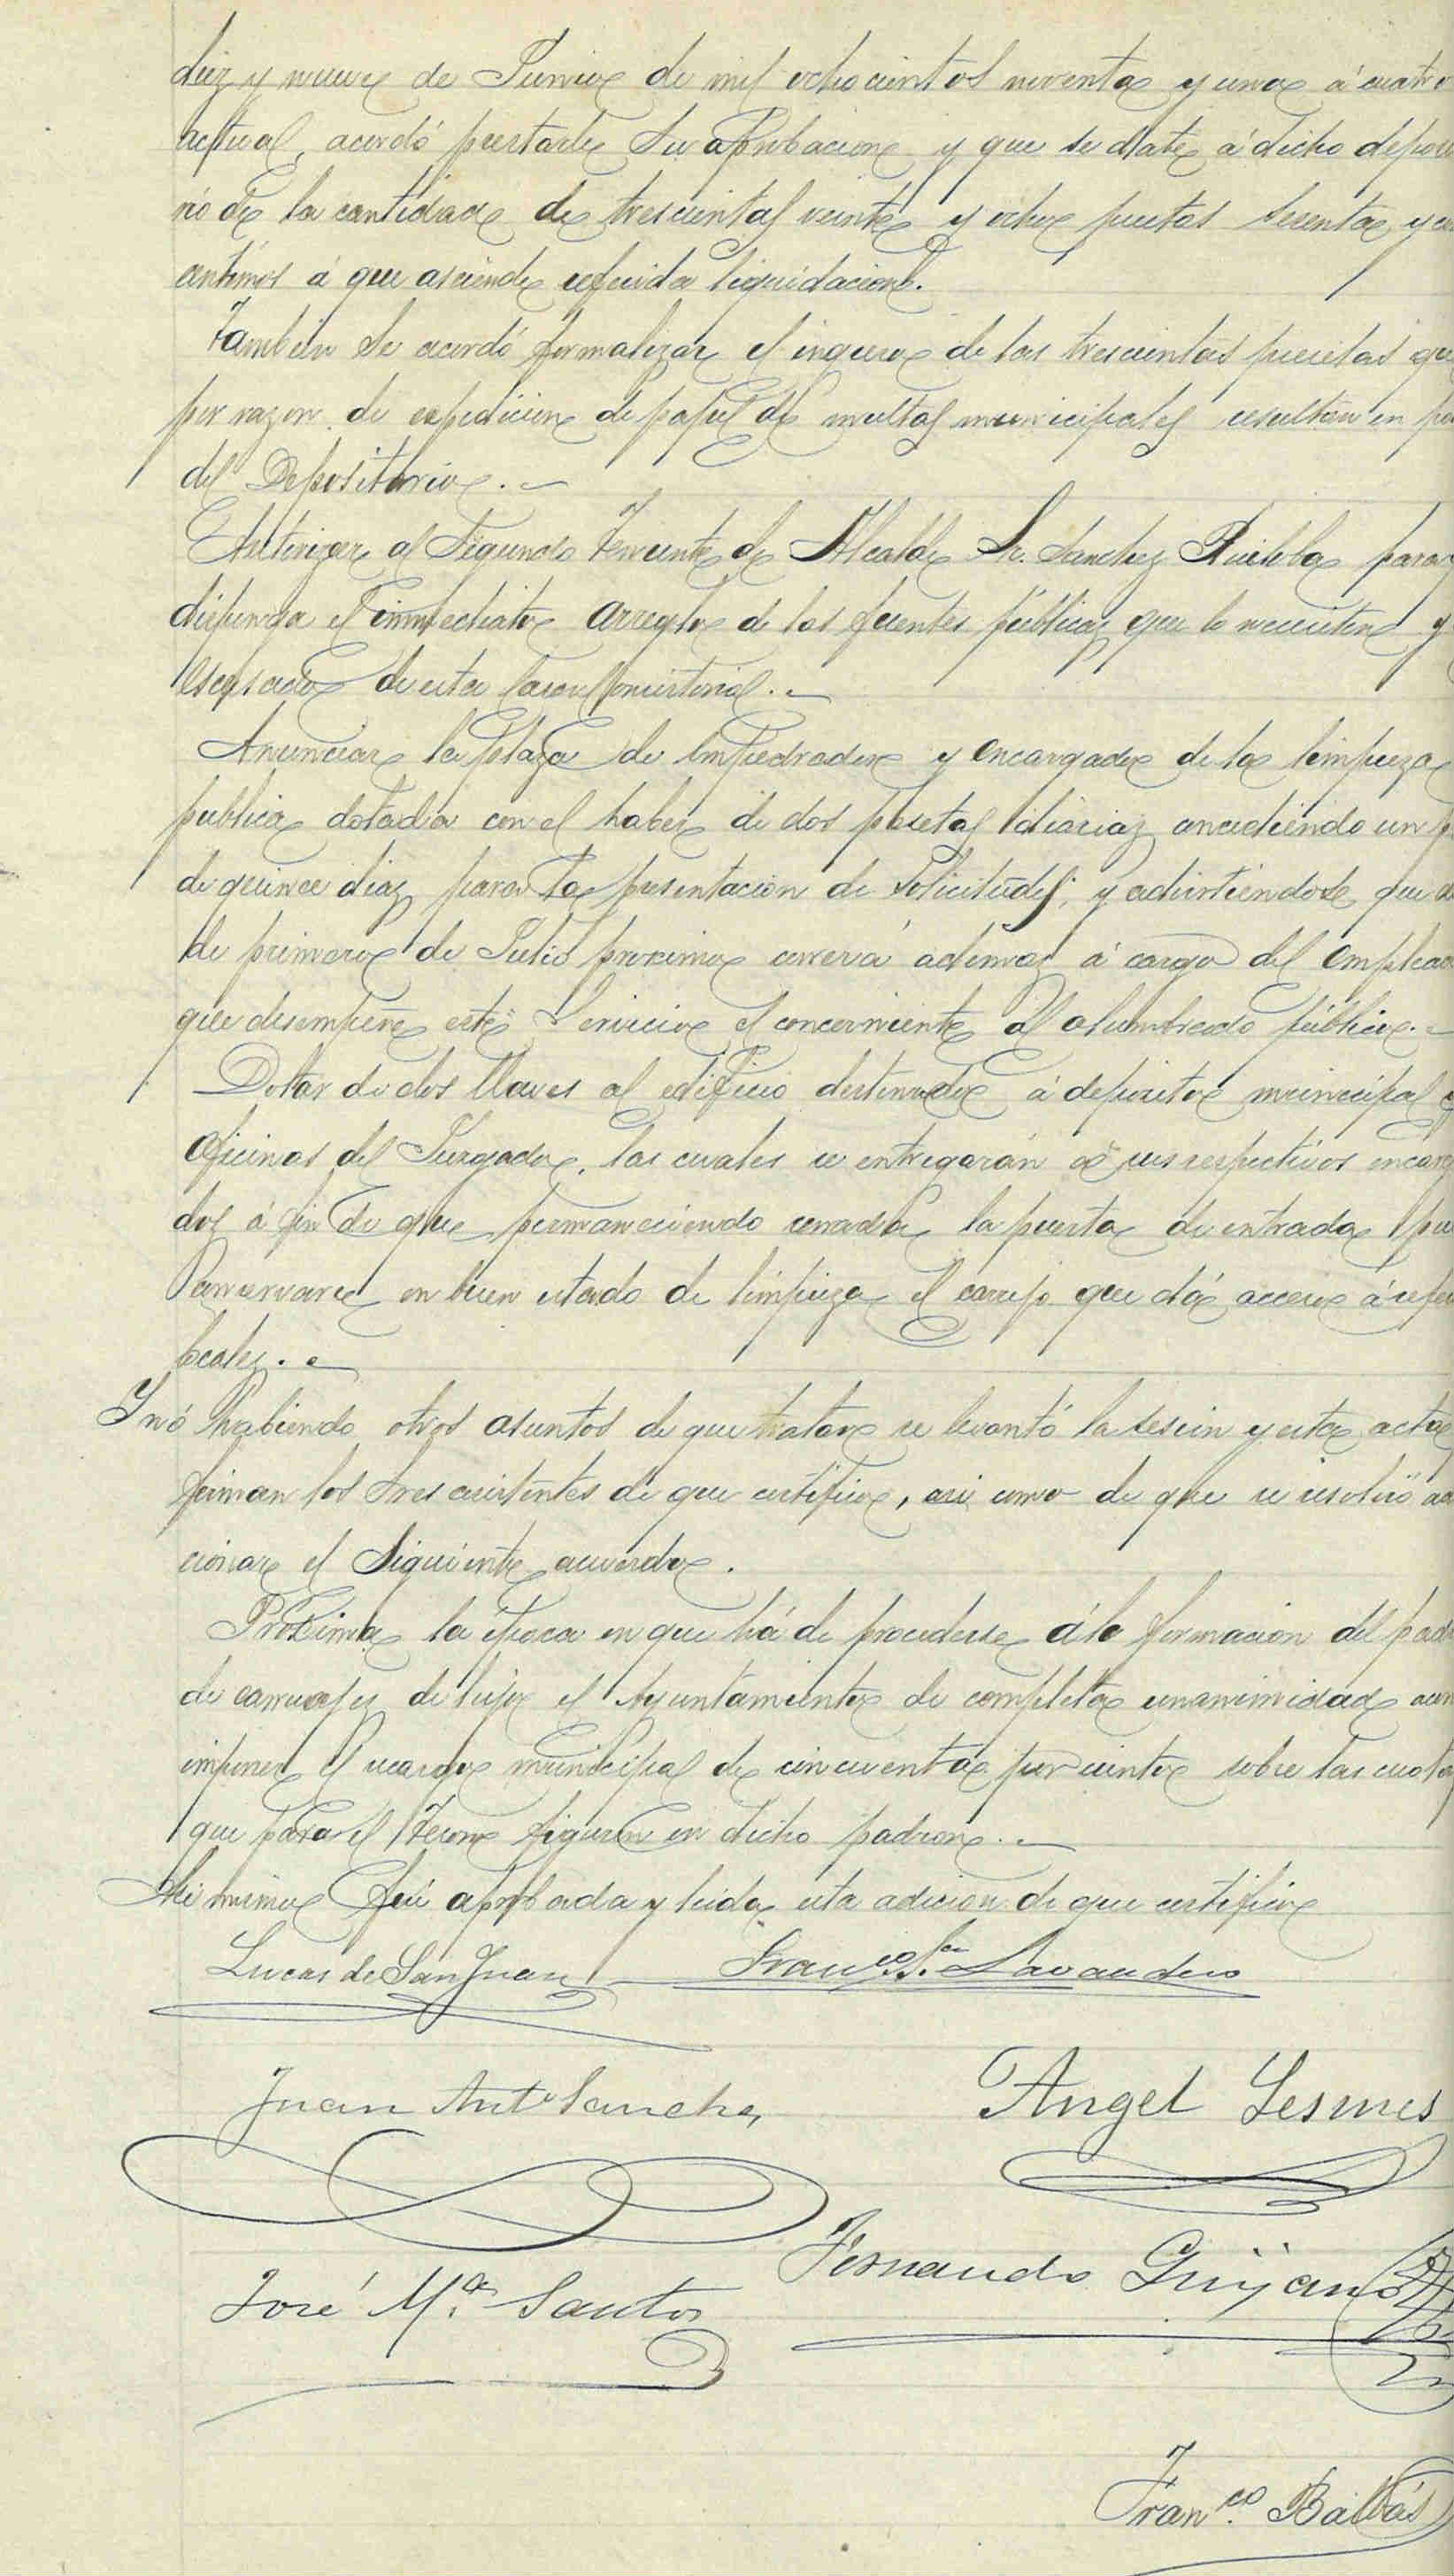 diez y nueve de Junio de mil ochocientos noventa y uno á cuatro
actual, acordó prestarle su aprobacion y que se date á dicho deposi
rio de la cantidad de trescientas veinte y ocho pesetas sesenta y
centimos á que asciende referida liquidacion.
Tambien se acordó formalizar el ingreso de las trescientas pesetas qu
por razon de espedicion de papel de multas municipales resultan en po
del Depositario.
Autorizar al Segundo Teniente de Alcalde Sr. Sánchez para
disponga el inmediato arreglo de las fuentes públicas que lo necesiten y
escusado de esta Casa Consistorial.
Anunciar la plaza de Empedrador y encargado de la limpieza
publica dotada con el haber de dos pesetas diarias, un p
de quince dias para la presentacion de solicitudes; y advirtiendose que
de primero de Julio proximo correrá ademas á cargo del emplea
que desempeñe este Servicio el concerniente al alumbrado público.
Dotar de dos llaves al edificio destinado á deposito municipal y
oficinas del Juzgado, las cuales se entregarán á sus respectivos encarg
dos á fin de que permaneciendo cerrada la puerta de entrada pu
conservarse en buen estado de limpieza el que dá acceso á refer
locales.
Y nó habiendo otros asuntos de que tratar se levantó la sesion y esta acta
firman los Sres asistentes de que certifico, asi como de que se resolvió adi
cionar el siguiente acuerdo.
Próxima la época en que há de procederse á la formacion del pad
de carruajes de lujo el Ayuntamiento de completa unanimidad acor
imponer el recargo municipal de cincuenta por ciento sobre las cuotas
que para el Tesoro figuren en dicho padron.
Asi mismo fué aprobada y leida esta adicion de que certifico
Lucas de San Juan Franco. Lavandero
Juan Anto Sanchez Angel Lesmes
José Ma. Santos Fernando Quijano
Franco. Balbás